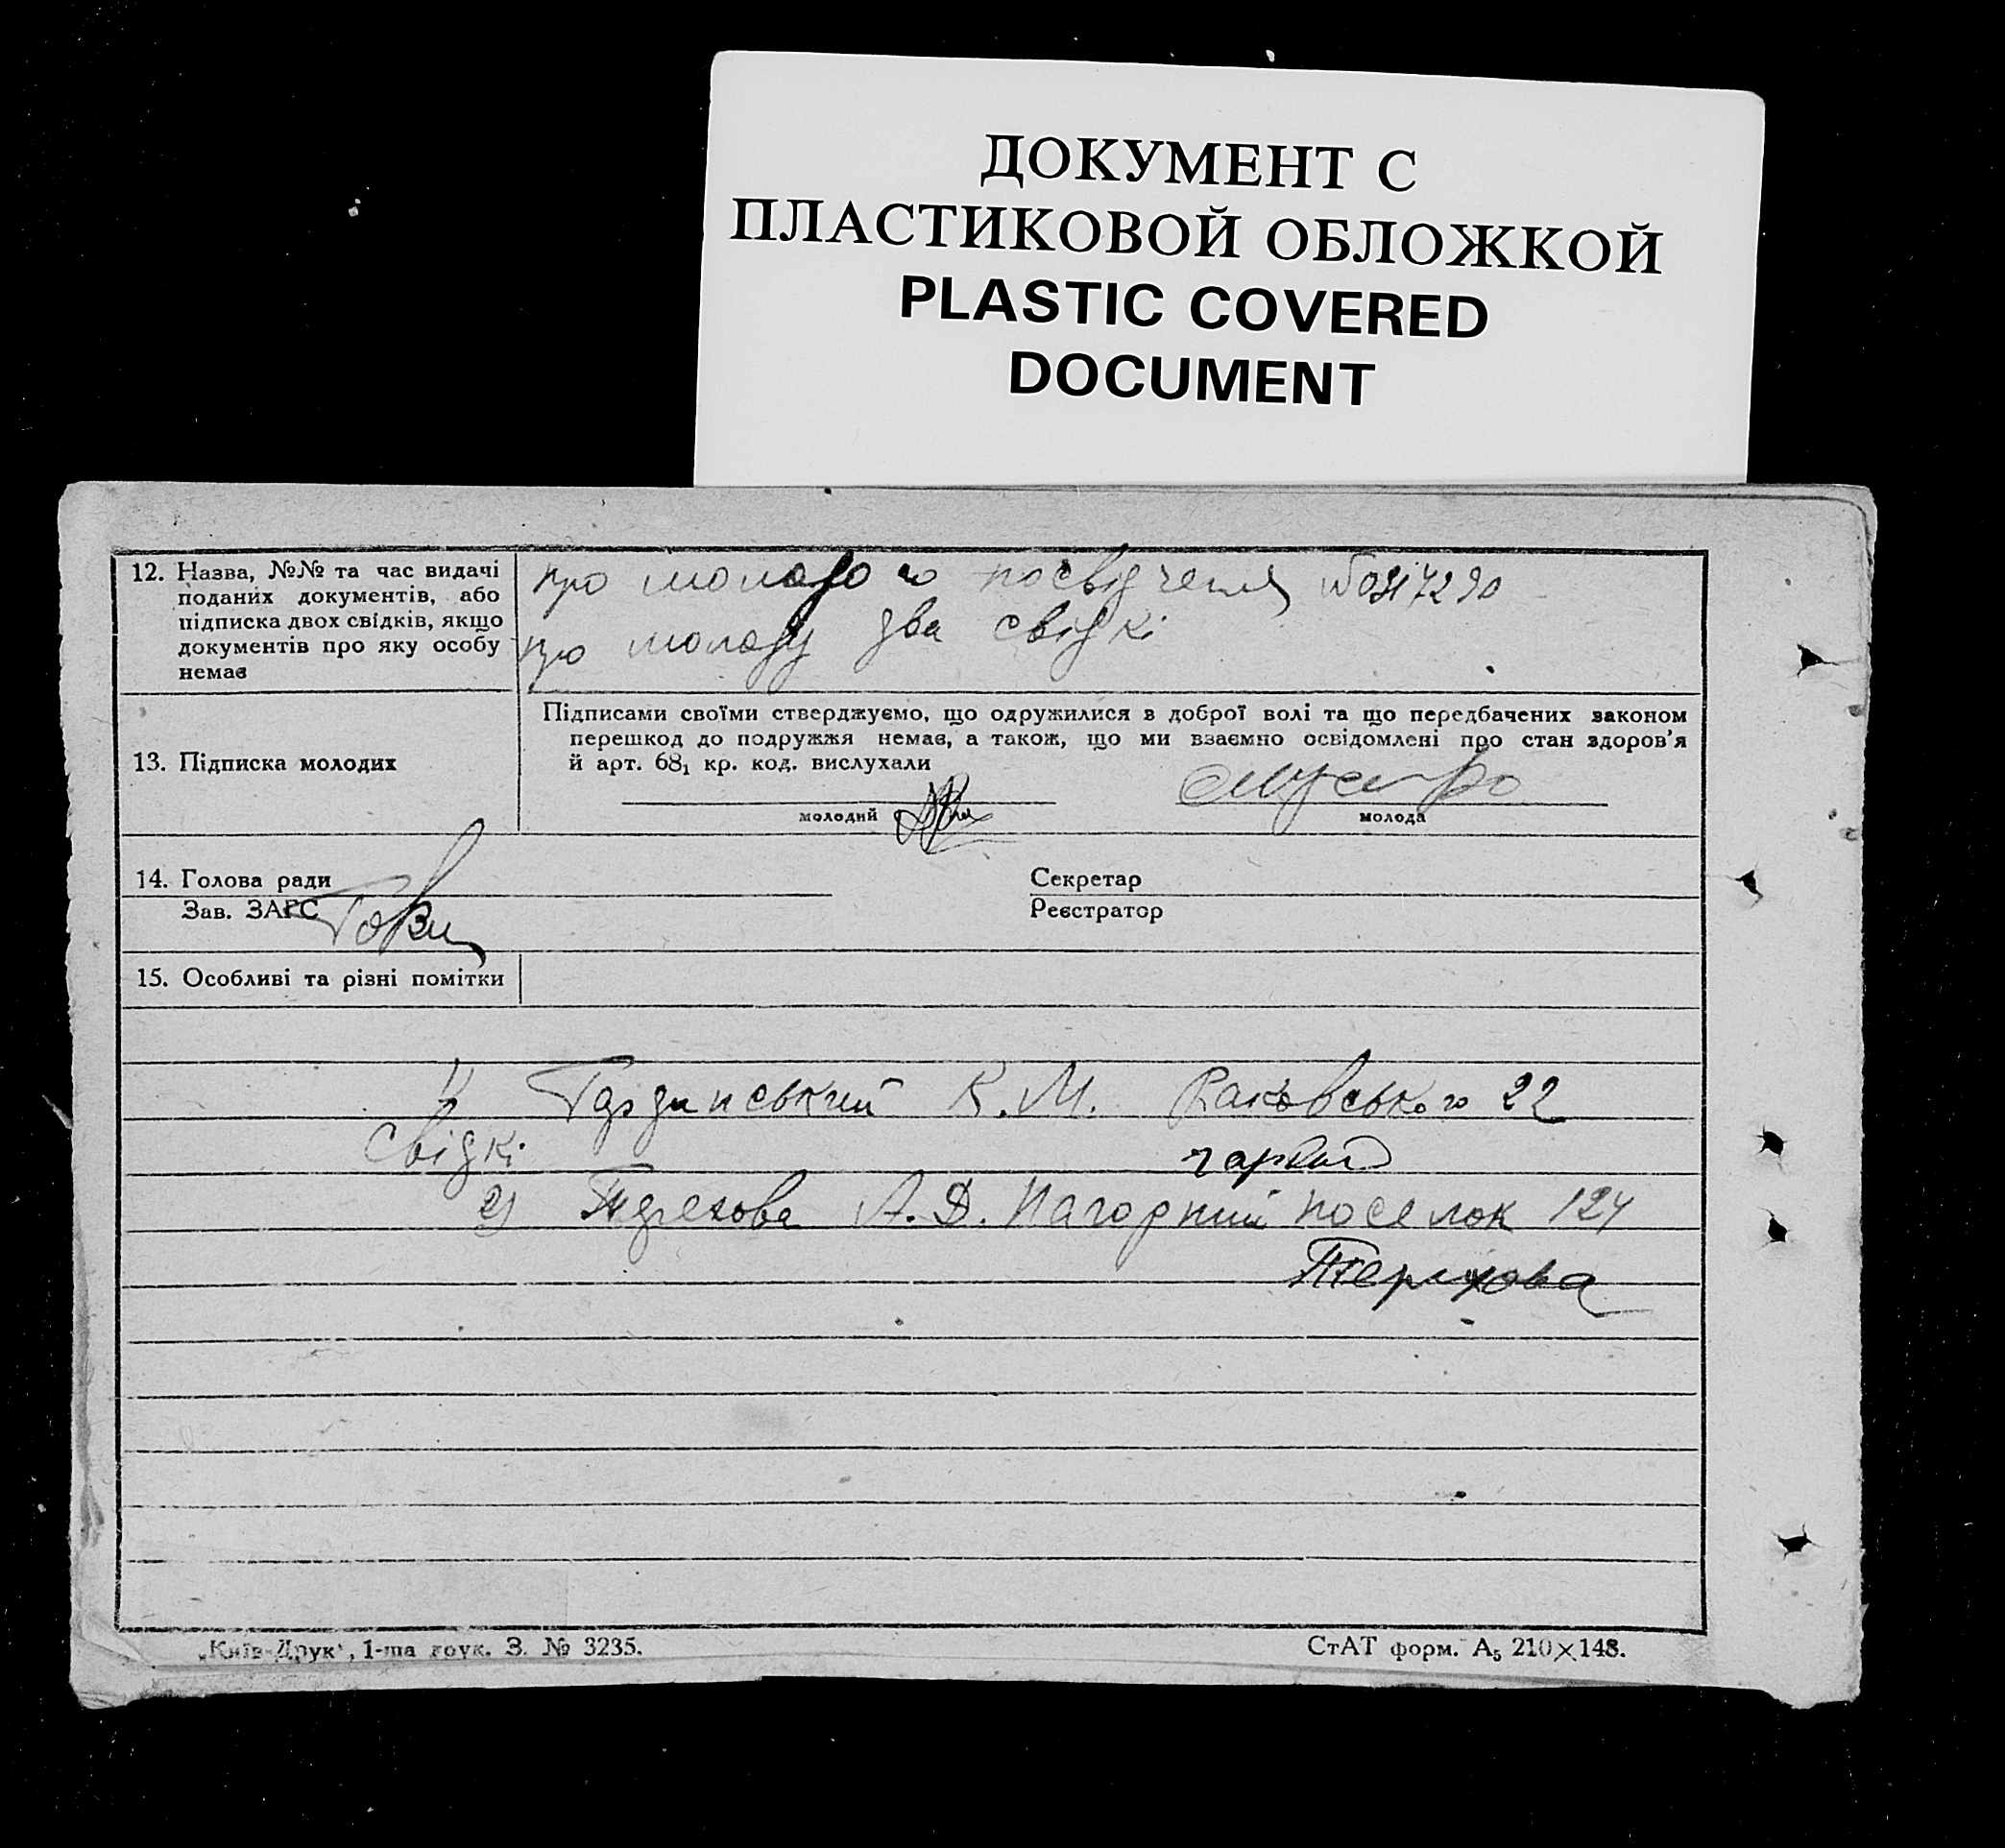 ДОКУМЕНТ С
ПЛАСТИКОВОЙ ОБЛОЖКОЙ
PLASTIC COVERED
DOCUMENT
12. Назва, №№ та час видачі
поданих документів, або
підписка двох свідків, якщо
документів про яку особу
немає
про молодого посвідчення
про молоду два свідкі
13. Підписка молодих
Підписами своїми стверджуємо, що одружилися в доброї волі та що передбачених законом
перешкод до подружжя немає, а також, що ми взаємно освідомлені про стан здоров'я
й арт. 68₁ кр. код. вислухали
молодий
молода
14. Голова ради
Секретар
Зав. ЗАГС
Реєстратор
15. Особливі та різні помітки
1) К. М. Раковського 22
свідкі
2) А. Д. Нагорний поселок 124
Терехова
„Київ-Друк", 1-ша друк. З. № 3235.
СтАТ форм. А₅ 210×148.